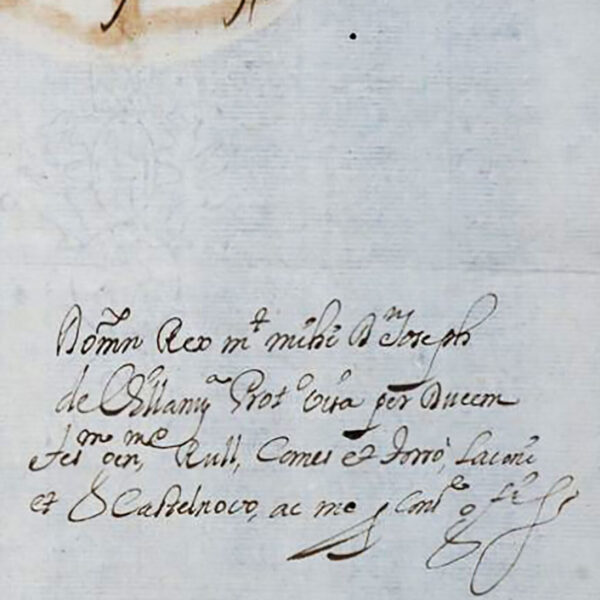 Domin Rex mt mihi Dn Joseph
de Villanua Prot. visa per Ducem
gen, Rull, Comes et Torro, Laconi
et Castelnovo, ac me Cons.